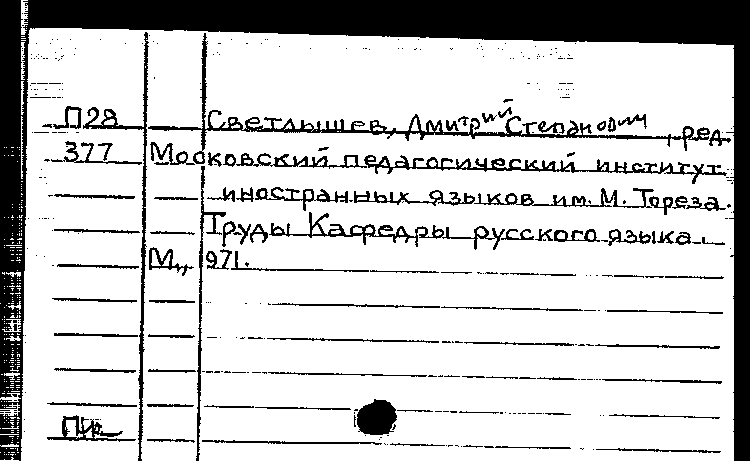 П28 Светлышев, Дмитрий Степанович, ред.
377 Московский педагогический институт
иностранных языков им. М. Тореза.
Труды Кафедры русского языка.
М., 1971.